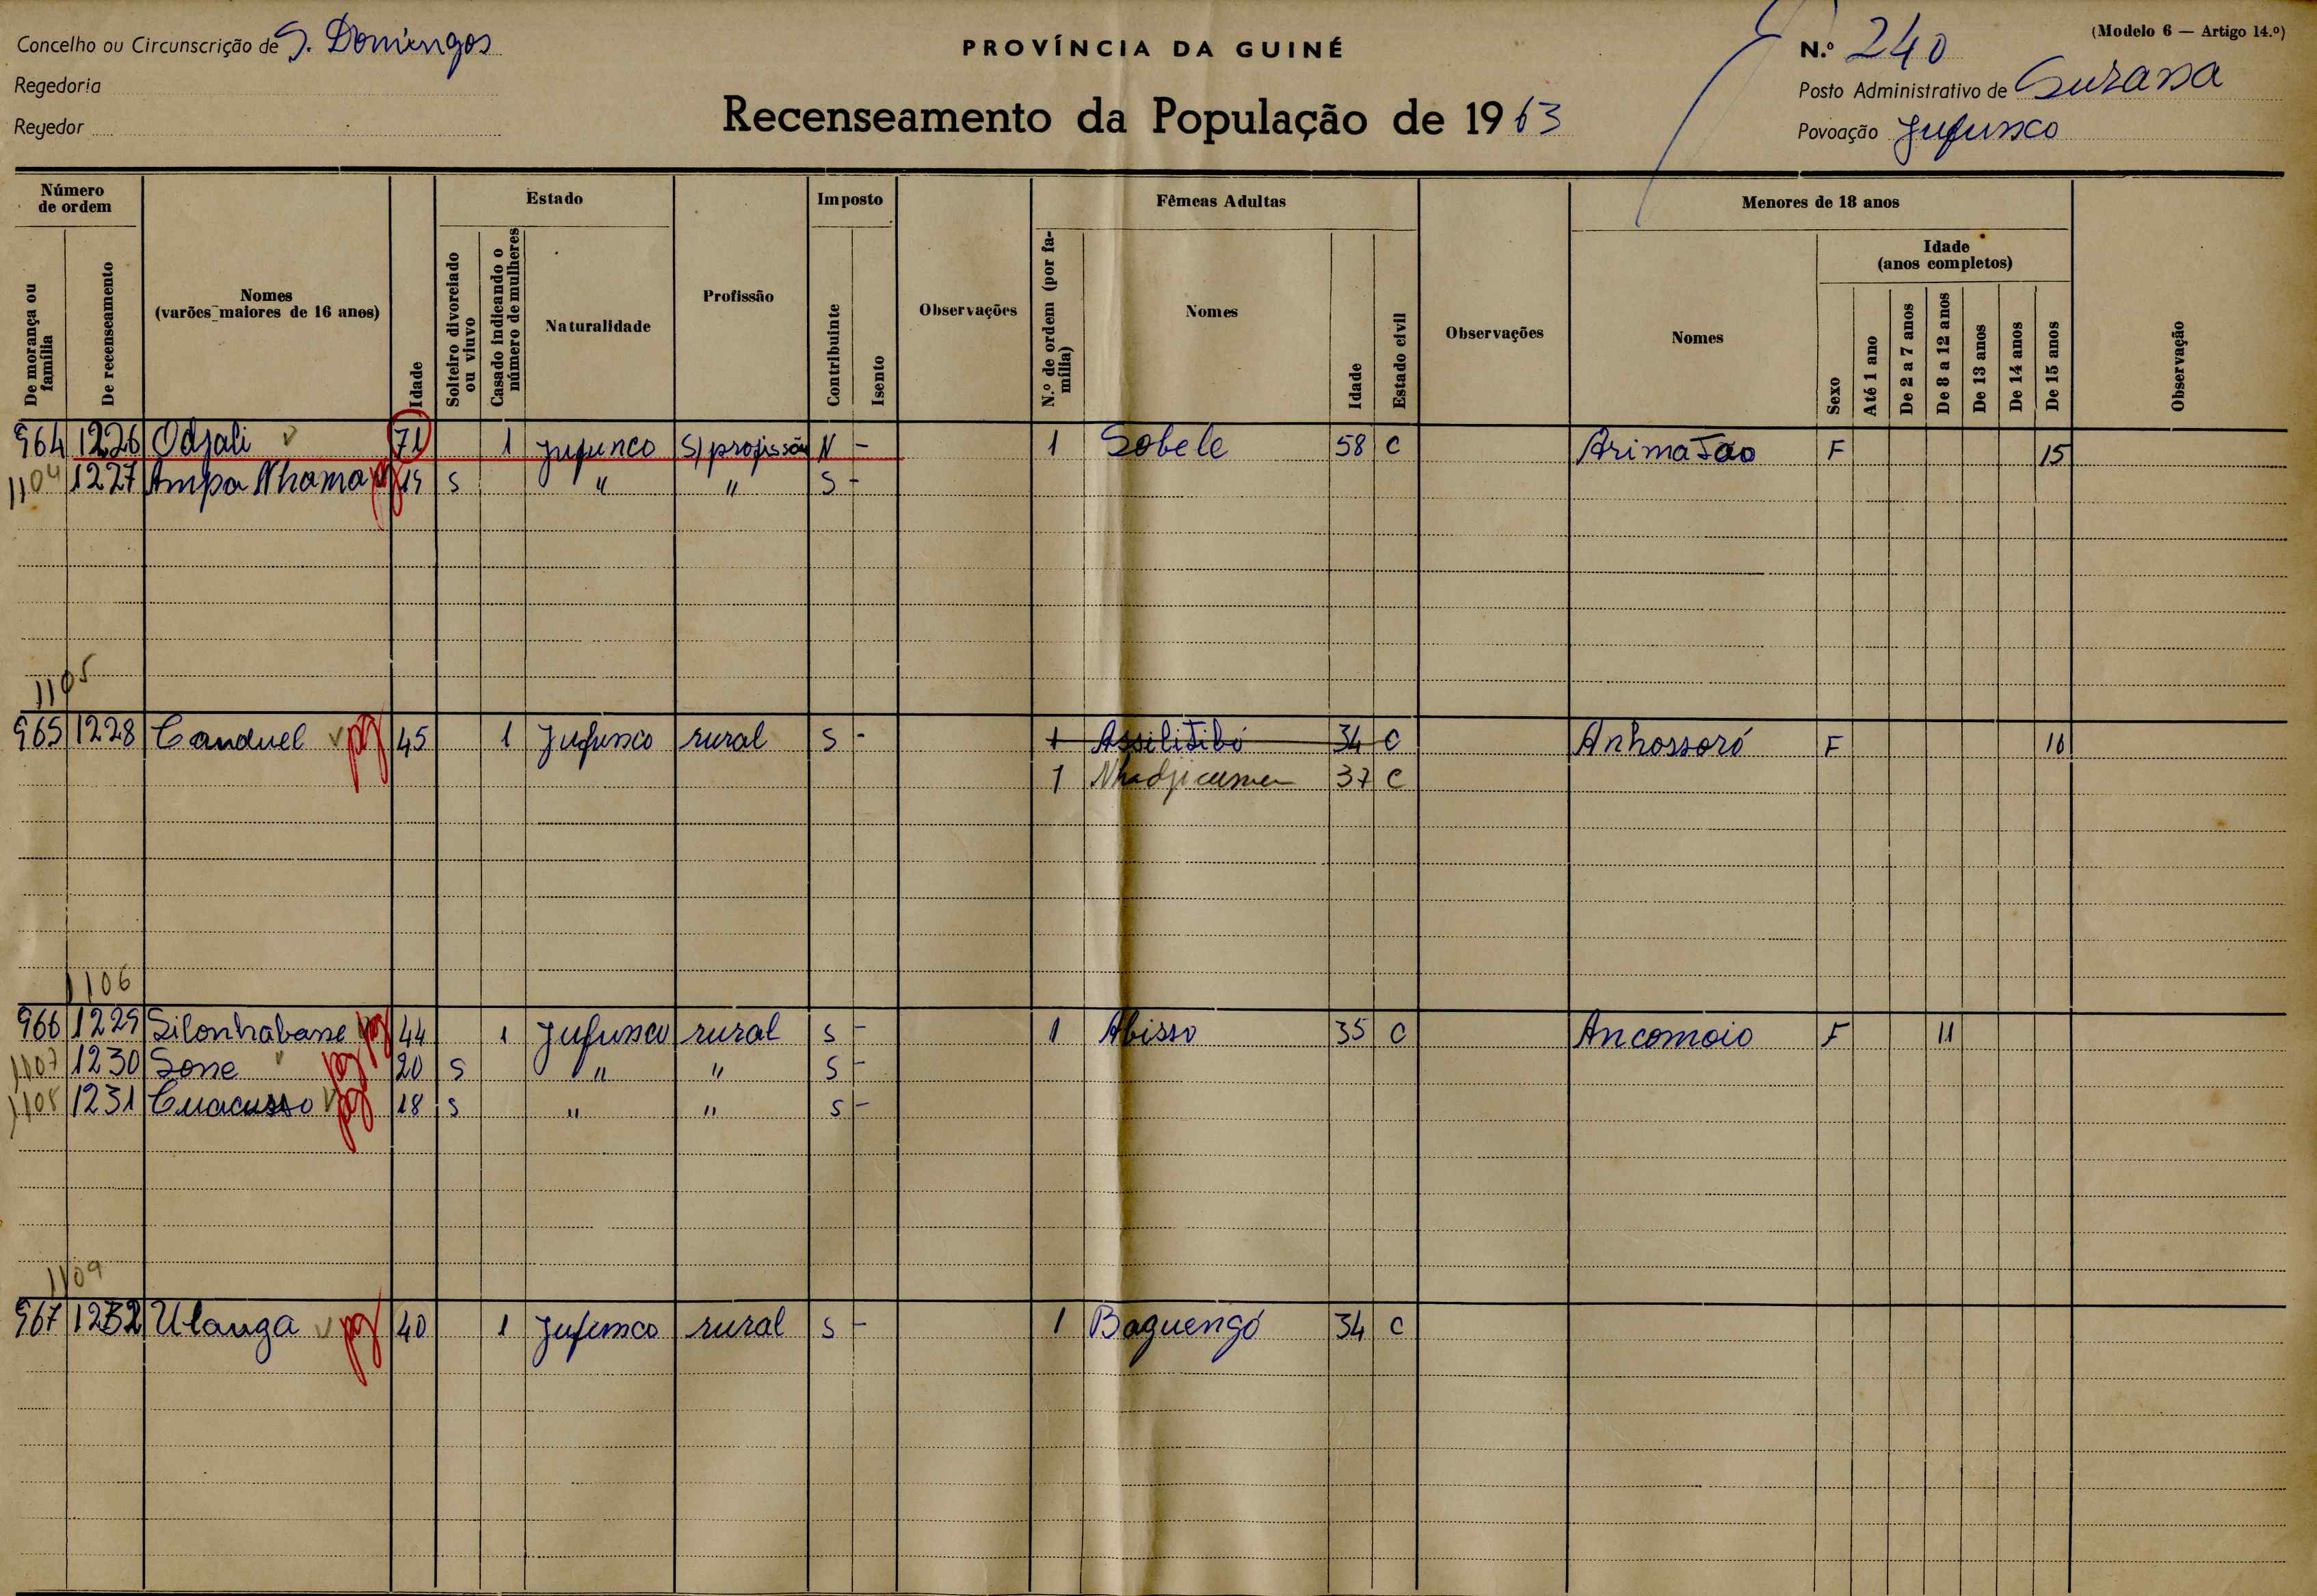 Concelho ou Circunscrição de S. Domingos
PROVÍNCIA DA GUINÉ
N.º 240
(Modelo 6 — Artigo 14.º)
Regedoria
Posto Administrativo de Suzana
Regedor
Recenseamento da População de 1963
Povoação Jufunco
Número de ordem
Estado
Imposto
Fêmeas Adultas
Menores de 18 anos
Idade (anos completos)
De morança ou família
De recenseamento
Nomes (varões maiores de 16 anos)
Idade
Solteiro divorciado ou viuvo
Casado indicando o número de mulheres
Naturalidade
Profissão
Contribuinte
Isento
Observações
N.º de ordem (por família)
Nomes
Idade
Estado civil
Observações
Nomes
Sexo
Até 1 ano
De 2 a 7 anos
De 8 a 12 anos
De 13 anos
De 14 anos
De 15 anos
Observação
964 1226 Odjali 71 1 Jufunco S/ profissão N - 1 Sobele 58 C Arima Jao F 15
1104 1227 Ampa Nhama pg 19 S " " S -
1105
965 1228 Canduel pg 45 1 Jufunco rural S - 1 Assilitibó 34 C Anhossoró F 16
1 Nhadjicumen 37 C
1106
966 1229 Silonhabane pg 44 1 Jufunco rural S - 1 Abisso 35 C Ancomoio F 11
1107 1230 Sone pg 20 S " " S -
1108 1231 Cuacusso pg 18 S " " S -
1109
967 1232 Ulanga pg 40 1 Jufunco rural S - 1 Baguengó 34 C